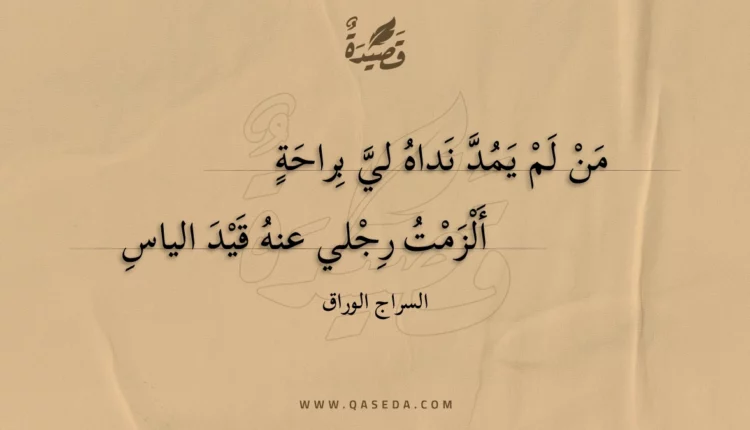 قَصِيدَةٌ
مَنْ لَمْ يَمُدَّ نَداهُ ليَّ بِراحَةٍ
أَلْزَمْتُ رِجْلي عنهُ قَيْدَ الياسِ
السراج الوراق
WWW.QASEDA.COM